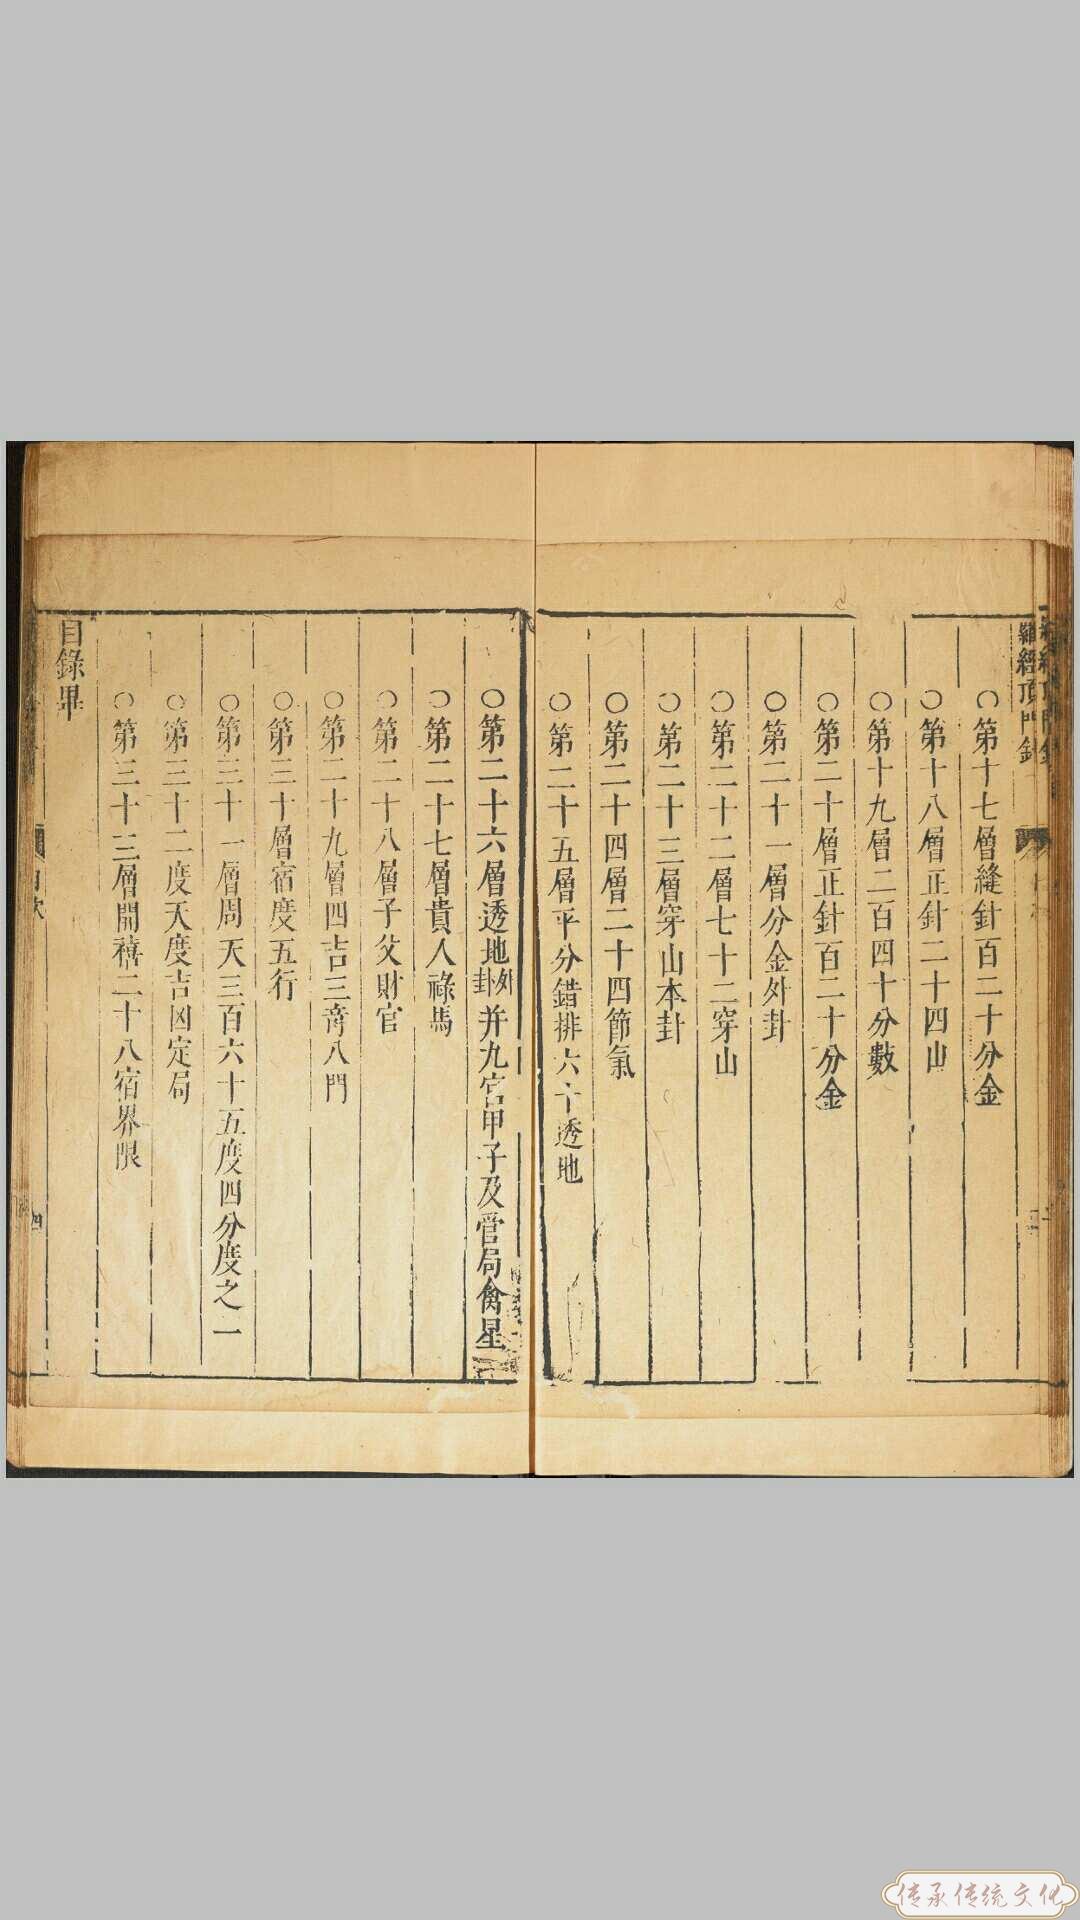 羅經頂門針
○第十七層縫針百二十分金
○第十八層正針二十四山
○第十九層二百四十分數
○第二十層正針百二十分金
○第二十一層分金外卦
○第二十二層七十二穿山
○第二十三層穿山本卦
○第二十四層二十四節氣
○第二十五層平分錯排六十透地
○第二十六層透地外卦并九宮甲子及管局禽星
○第二十七層貴人祿馬
○第二十八層子父財官
○第二十九層四吉三竒八門
○第三十層宿度五行
○第三十一層周天三百六十五度四分度之一
○第三十二度天度吉凶定局
○第三十三層開禧二十八宿界限
目錄畢
目次
四
传承传统文化